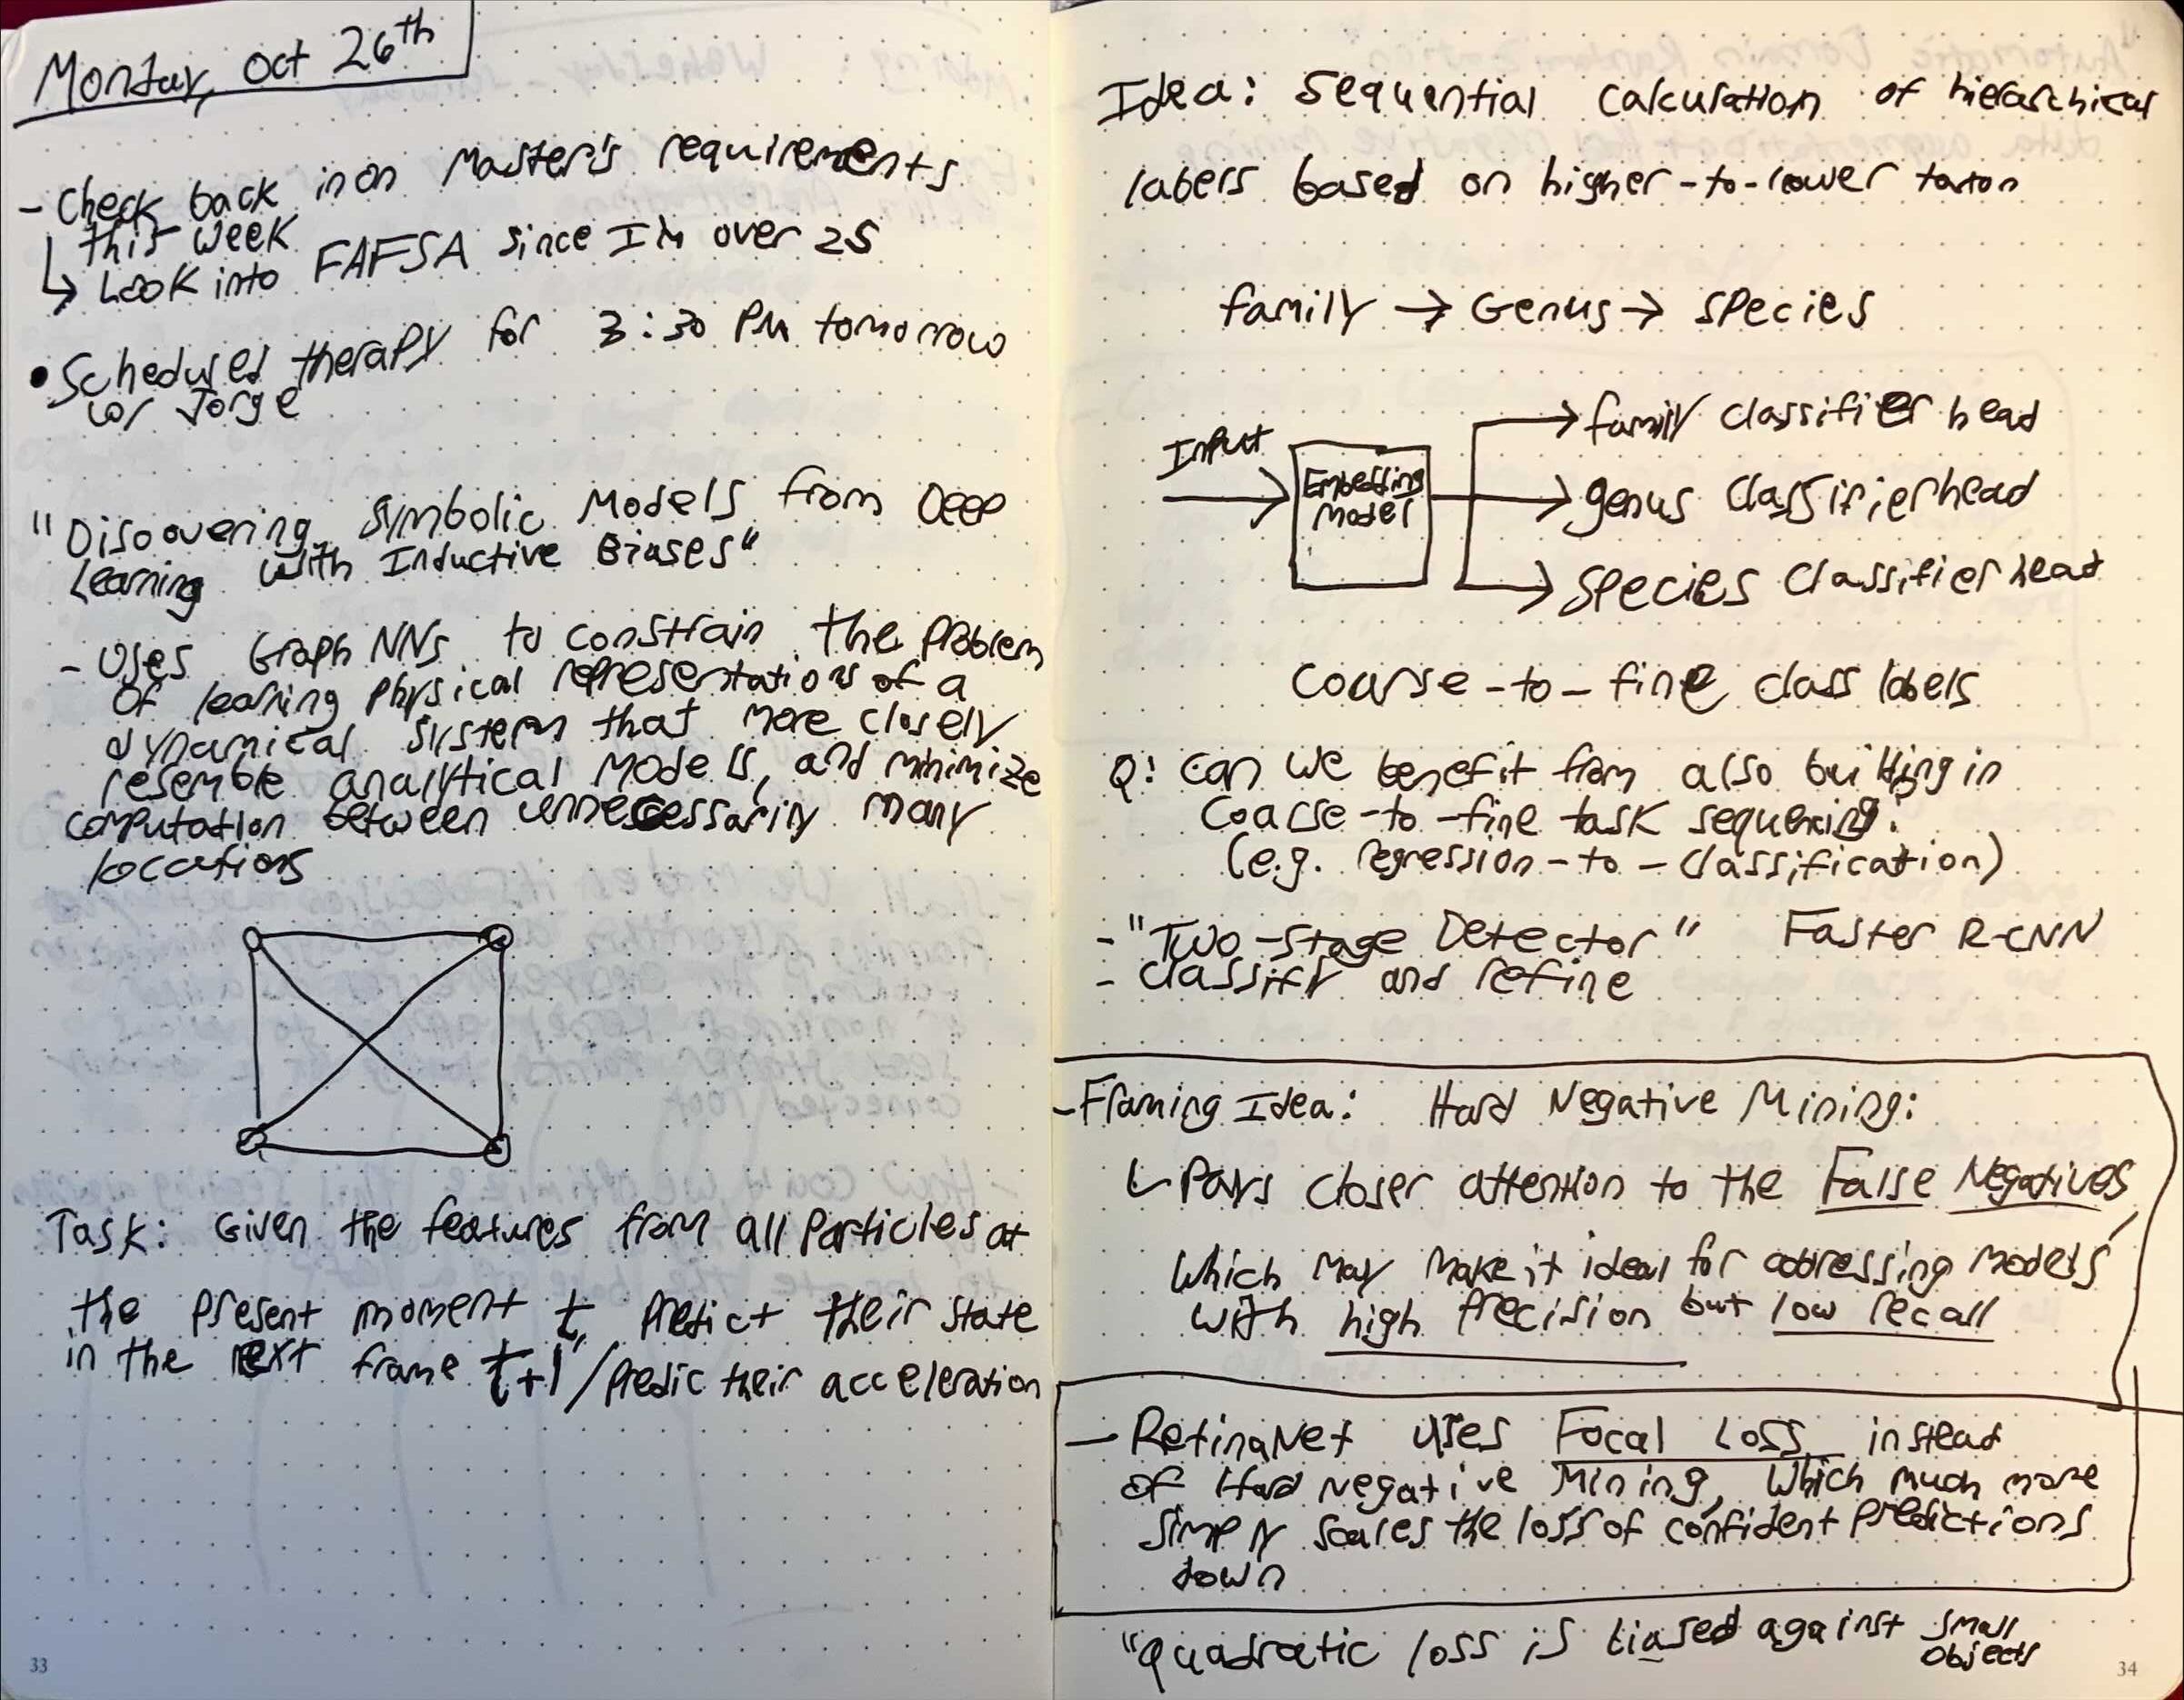 Monday, Oct 26th
- Check back in on Master's requirements
this week
↳ Look into FAFSA since I'm over 25
• Scheduled therapy for 3:30 PM tomorrow
w/ Jorge
"Discovering Symbolic Models from Deep
Learning with Inductive Biases"
- Uses Graph NNs to constrain the problem
of learning physical representations of a
dynamical system that more closely
resemble analytical models, and minimize
computation between unnecessarily many
locations
Task: Given the features from all particles at
the present moment t, predict their state
in the next frame t+1 / predic their acceleration
33
Idea: Sequential calculation of hierarchical
labels based on higher-to-lower taxon
family → Genus → species
Input
Embedding
Model
family classifier head
genus classifier head
species classifier head
coarse-to-fine class labels
Q: Can we benefit from also building in
coarse-to-fine task sequencing?
(e.g. regression-to-classification)
- "Two-Stage Detector" Faster R-CNN
- classify and refine
- Framing Idea: Hard Negative Mining:
↳ Pays closer attention to the False Negatives,
which may make it ideal for addressing models
with high precision but low recall
- RetinaNet uses Focal Loss instead
of Hard Negative Mining, which much more
simply scales the loss of confident predictions
down
"Quadratic loss is biased against small
objects
34